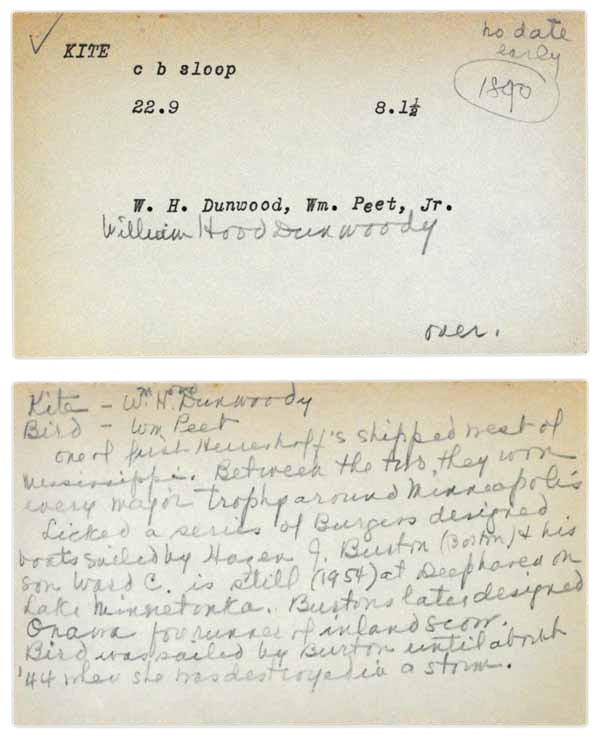 ✓
no date
early
1890
KITE
c b sloop
22.9 8.1½
W. H. Dunwood, Wm. Peet, Jr.
William Hood Dunwoody
over.
Kite - Wm Hood Dunwoody
Bird - Wm Peet
one of first Herreshoff's shipped west of
Mississippi. Between the two, they won
every major trophy around Minneapolis
Licked a series of Burgess designed
boats sailed by Hazen J. Burton (Boston) & his
son Ward C. is still (1954) at Deephaven on
Lake Minnetonka. Burtons later designed
Onawa forrunner of inland scow.
Bird was sailed by Burton until about
'44 when she was destroyed in a storm.